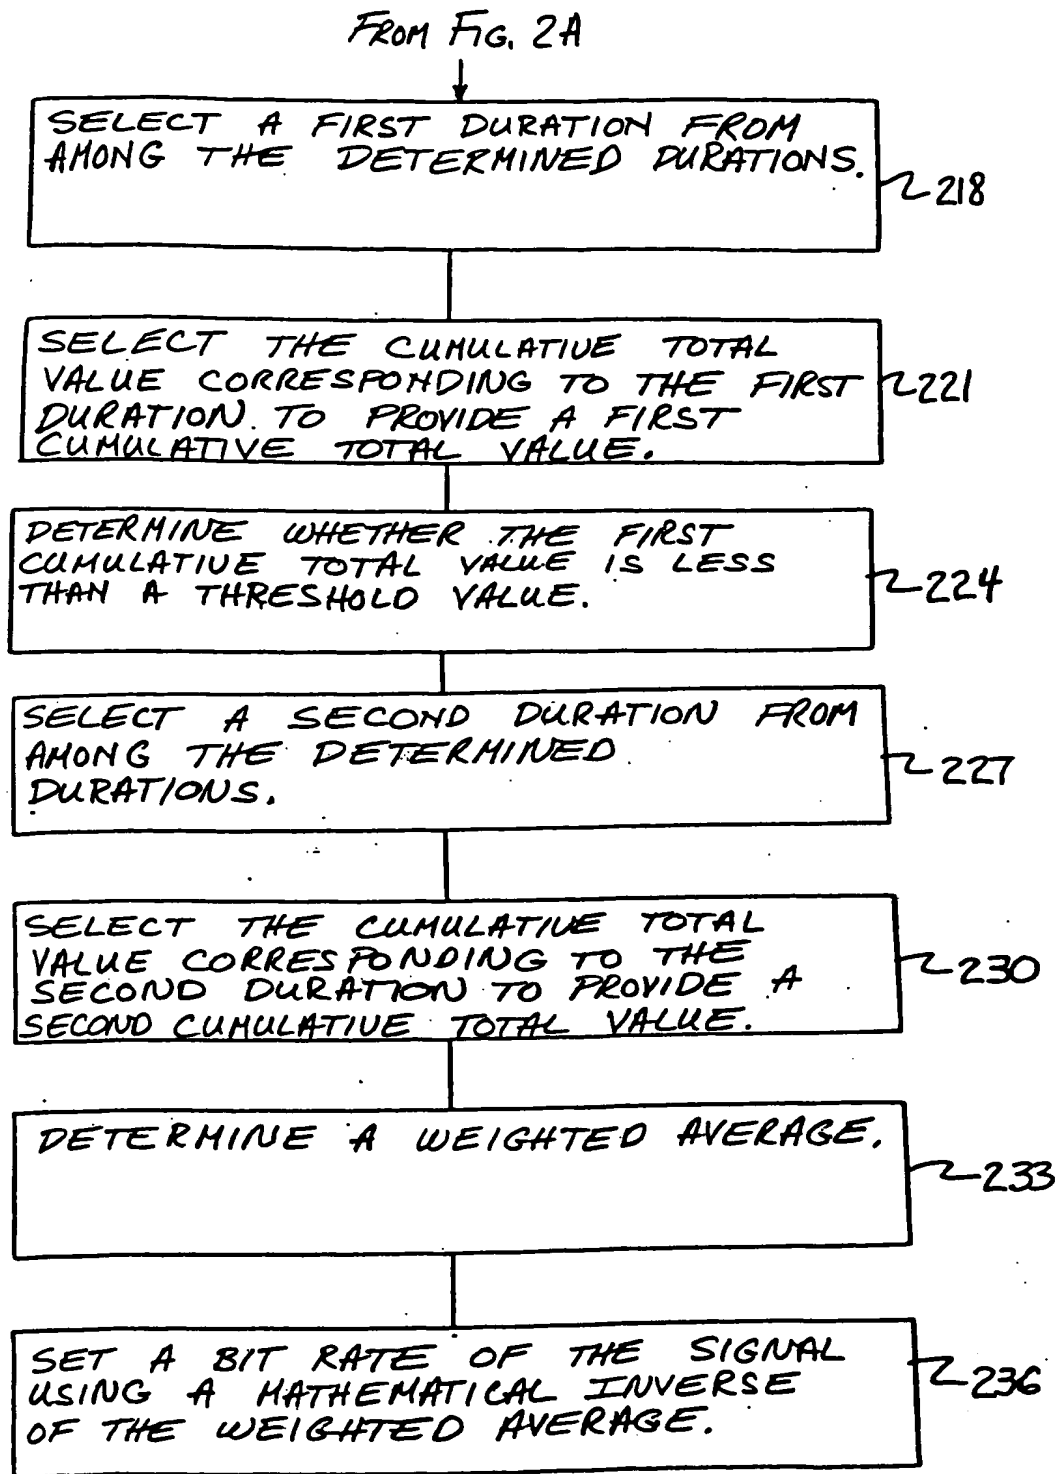 FROM FIG. 2A
SELECT A FIRST DURATION FROM
AMONG THE DETERMINED DURATIONS.
218
SELECT THE CUMULATIVE TOTAL
VALUE CORRESPONDING TO THE FIRST
DURATION. TO PROVIDE A FIRST
CUMULATIVE TOTAL VALUE.
221
DETERMINE WHETHER THE FIRST
CUMULATIVE TOTAL VALUE IS LESS
THAN A THRESHOLD VALUE.
224
SELECT A SECOND DURATION FROM
AMONG THE DETERMINED
DURATIONS.
227
SELECT THE CUMULATIVE TOTAL
VALUE CORRESPONDING TO THE
SECOND DURATION TO PROVIDE A
SECOND CUMULATIVE TOTAL VALUE.
230
DETERMINE A WEIGHTED AVERAGE.
233
SET A BIT RATE OF THE SIGNAL
USING A MATHEMATICAL INVERSE
OF THE WEIGHTED AVERAGE.
236